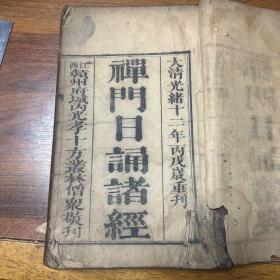 大清光緒十二年丙戌歲重刊
禪門日誦諸經
江西贛州府城內光孝十方叢林僧衆敬刊